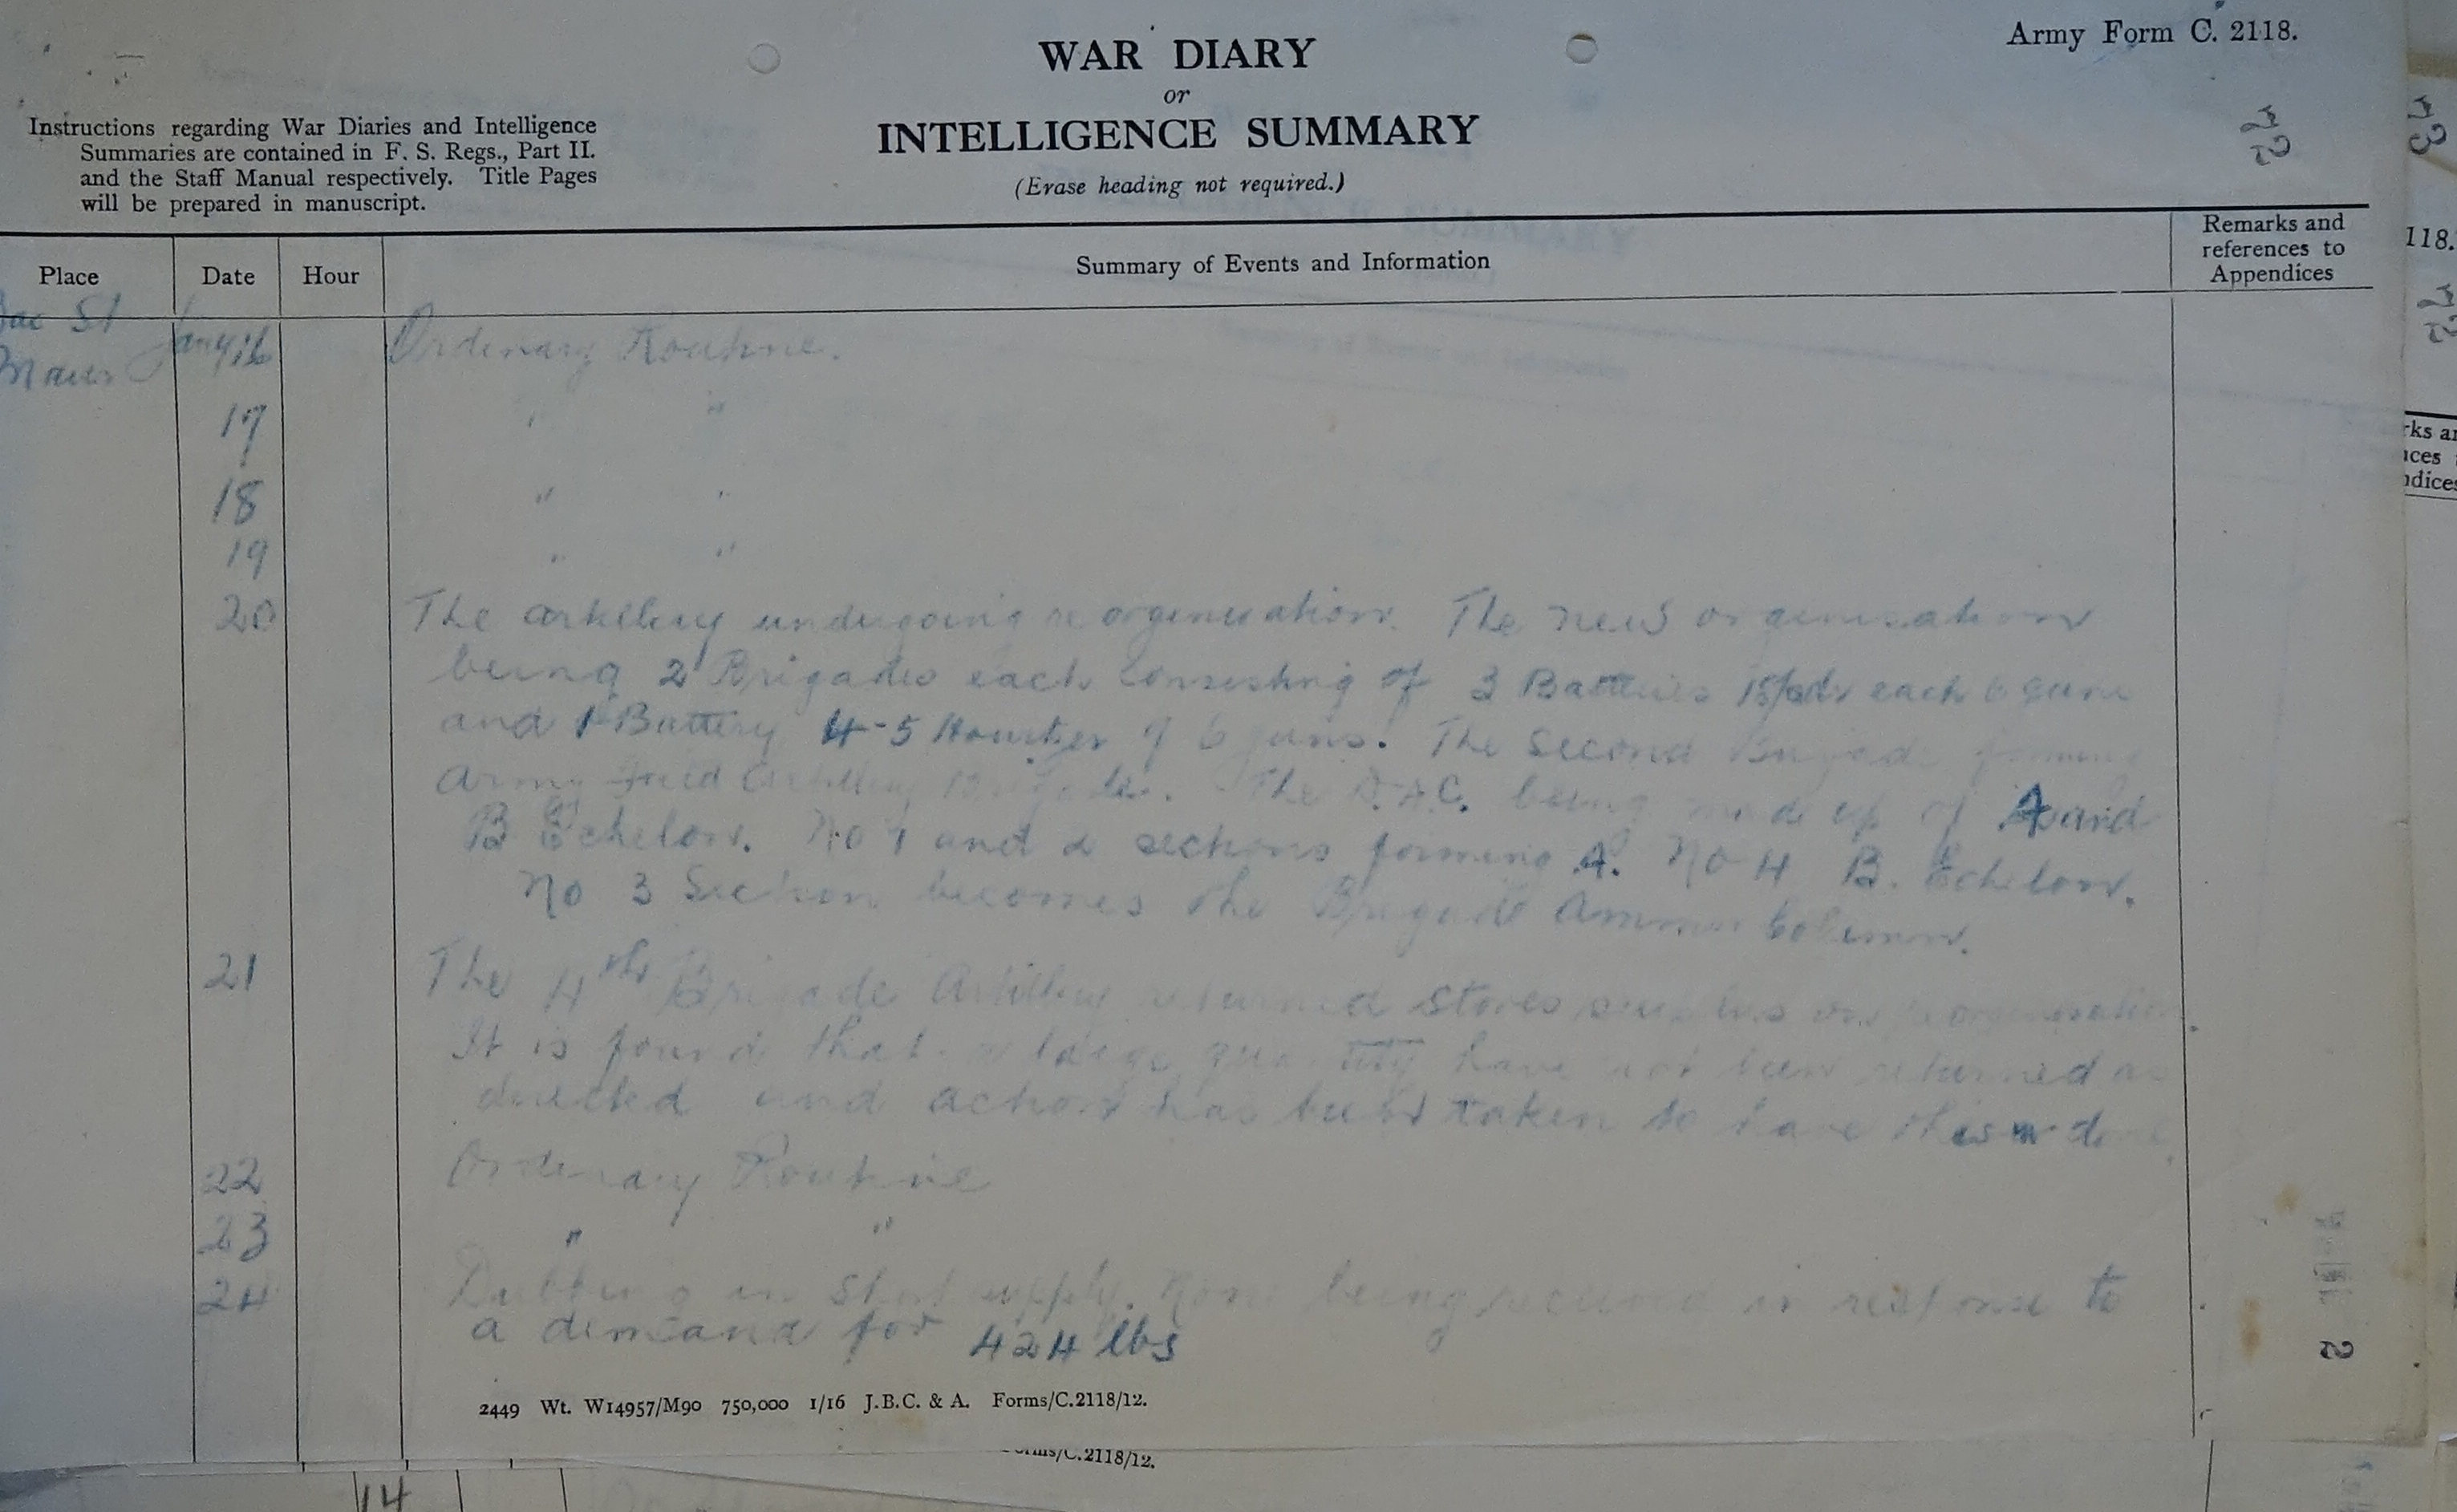 Army Form C. 2118.
WAR DIARY
or
INTELLIGENCE SUMMARY
(Erase heading not required.)
Instructions regarding War Diaries and Intelligence
Summaries are contained in F. S. Regs., Part II.
and the Staff Manual respectively. Title Pages
will be prepared in manuscript.
Place Date Hour Summary of Events and Information Remarks and references to Appendices
Bac St
Maur Jany 16 Ordinary Routine.
17 " "
18 " "
19 " "
20 The artillery undergoing reorganisation. The new organisation
being 2 Brigades each consisting of 3 Batteries 18pdr each 6 guns
and 1 Battery 4-5 Howitzer of 6 guns. The second Brigade forming
Army Field Artillery Brigade. The D.A.C. being made up of A and
B Echelon. No 1 and 2 sections forming A. No 4 B. Echelon.
No 3 Section becomes the Brigade Ammn Column.
21 The 4th Brigade Artillery returned stores surplus on reorganisation.
It is found that a large quantity have not been returned as
directed and action has been taken to have this done.
22 Ordinary Routine
23 " "
24 Dubbing in short supply. None being received in response to
a demand for 424 lbs
2449 Wt. W14957/M90 750,000 1/16 J.B.C. & A. Forms/C.2118/12.
Forms/C.2118/12.
14
118.
2